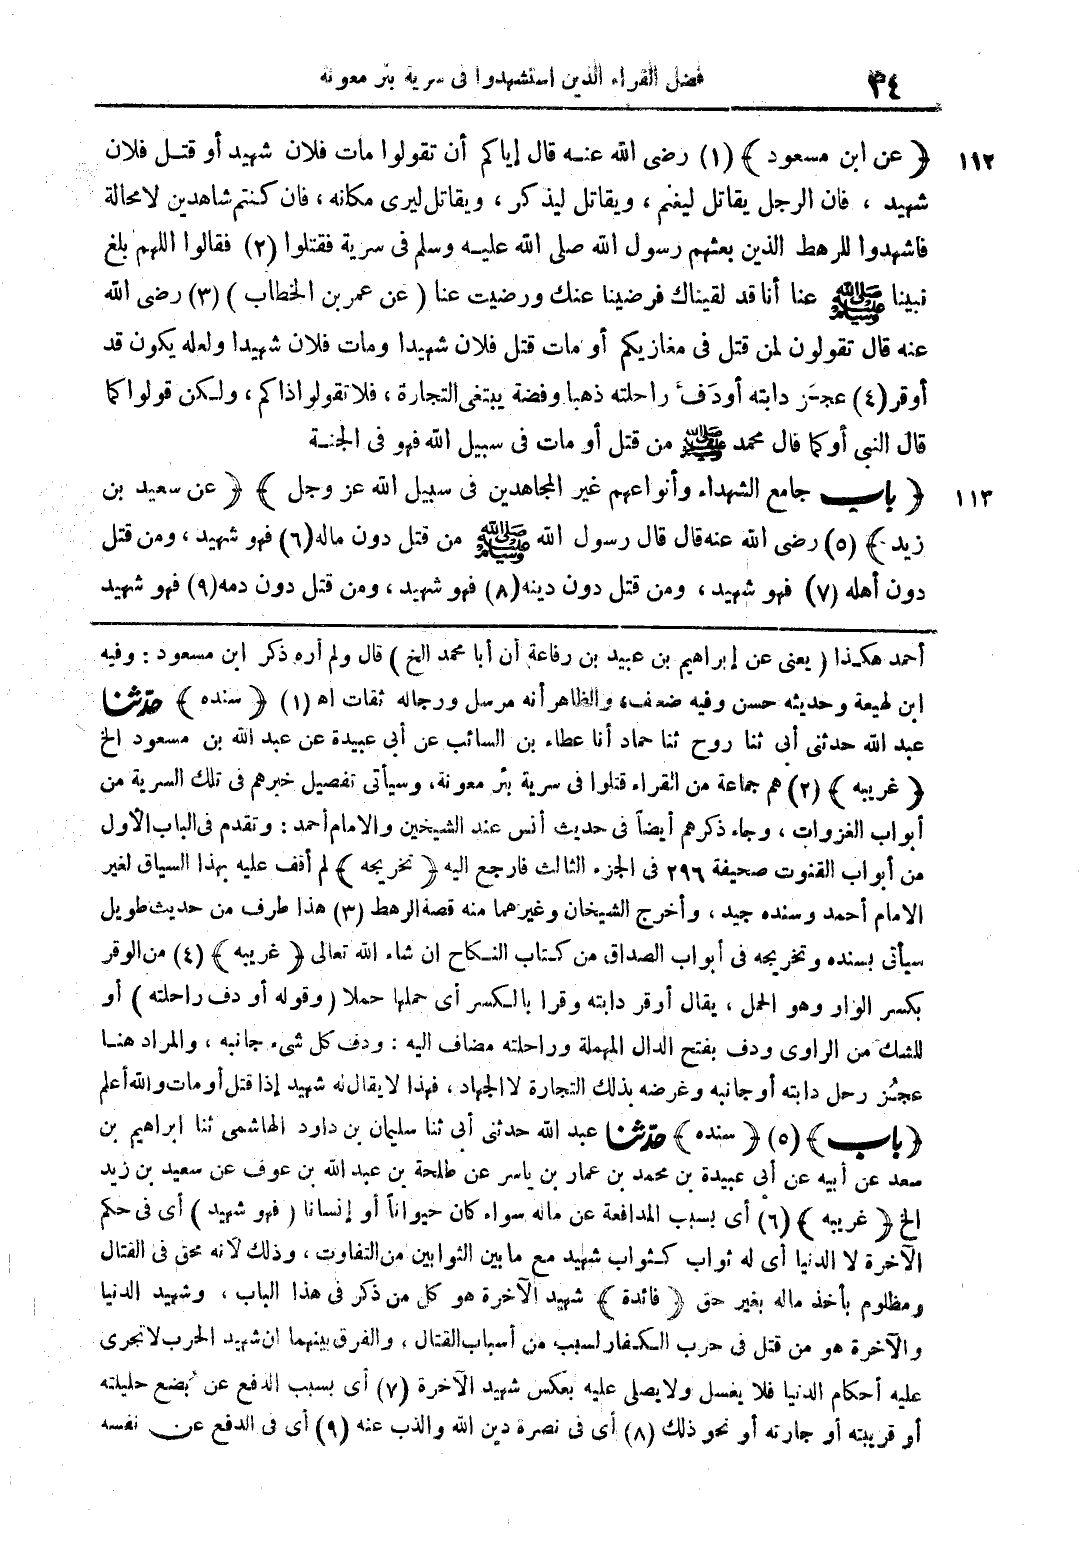 ٣٤ فضل القراء الذين استشهدوا فى سرية بئر معونة
١١٢ ﴿ عن ابن مسعود ﴾ (١) رضى الله عنه قال إياكم أن تقولوا مات فلان شهيد أو قتل فلان
شهيد ، فان الرجل يقاتل ليغنم ، ويقاتل ليذكر ، ويقاتل ليرى مكانه ، فان كنتم شاهدين لامحالة
فاشهدوا للرهط الذين بعثهم رسول الله صلى الله عليه وسلم فى سرية فقتلوا (٢) فقالوا اللهم بلغ
نبينا ﷺ عنا أنا قد لقيناك فرضينا عنك ورضيت عنا ( عن عمر بن الخطاب ) (٣) رضى الله
عنه قال تقولون لمن قتل فى مغازيكم أو مات قتل فلان شهيدا ومات فلان شهيدا ولعله يكون قد
أوقر (٤) عجز دابته أو دف راحلته ذهبا وفضة يبتغى التجارة ، فلا تقولوا ذاكم ، ولكن قولوا كما
قال النبى أو كما قال محمد ﷺ من قتل أو مات فى سبيل الله فهو فى الجنة
١١٣ ﴿ باب جامع الشهداء وأنواعهم غير المجاهدين فى سبيل الله عز وجل ﴾ ﴿ عن سعيد بن
زيد ﴾ (٥) رضى الله عنه قال قال رسول الله ﷺ من قتل دون ماله (٦) فهو شهيد ، ومن قتل
دون أهله (٧) فهو شهيد ، ومن قتل دون دينه (٨) فهو شهيد ، ومن قتل دون دمه (٩) فهو شهيد
أحمد هكذا ( يعنى عن إبراهيم بن عبيد بن رفاعة أن أبا محمد الخ ) قال ولم أره ذكر ابن مسعود : وفيه
ابن لهيعة وحديثه حسن وفيه ضعف ، والظاهر أنه مرسل ورجاله ثقات اه (١) ﴿ سنده ﴾ حدثنا
عبد الله حدثنى أبى ثنا روح ثنا حماد أنا عطاء بن السائب عن أبى عبيدة عن عبد الله بن مسعود الخ
﴿ غريبه ﴾ (٢) هم جماعة من القراء قتلوا فى سرية بئر معونة، وسيأتى تفصيل خبرهم فى تلك السرية من
أبواب الغزوات ، وجاء ذكرهم أيضاً فى حديث أنس عند الشيخين والامام أحمد : وتقدم فى الباب الأول
من أبواب القنوت صحيفة ٢٩٦ فى الجزء الثالث فارجع اليه ﴿ تخريجه ﴾ لم أقف عليه بهذا السياق لغير
الامام أحمد وسنده جيد ، وأخرج الشيخان وغيرهما منه قصة الرهط (٣) هذا طرف من حديث طويل
سيأتى بسنده وتخريجه فى أبواب الصداق من كتاب النكاح ان شاء الله تعالى ﴿ غريبه ﴾ (٤) من الوقر
بكسر الواو وهو الحمل ، يقال أوقر دابته وقرا بالكسر أى حملها حملا ( وقوله أو دف راحلته ) أو
للشك من الراوى ودف بفتح الدال المهملة وراحلته مضاف اليه : ودف كل شىء جانبه ، والمراد هنا
عجز رحل دابته أو جانبه وغرضه بذلك التجارة لا الجهاد ، فهذا لا يقال له شهيد إذا قتل أو مات والله أعلم
﴿ باب ﴾ (٥) ﴿ سنده ﴾ حدثنا عبد الله حدثنى أبى ثنا سليمان بن داود الهاشمى ثنا ابراهيم بن
سعد عن أبيه عن أبى عبيدة بن محمد بن عمار بن ياسر عن طلحة بن عبد الله بن عوف عن سعيد بن زيد
الخ ﴿ غريبه ﴾ (٦) أى بسبب المدافعة عن ماله سواء كان حيواناً أو إنسانا ( فهو شهيد ) أى فى حكم
الآخرة لا الدنيا أى له ثواب كثواب شهيد مع ما بين الثوابين من التفاوت ، وذلك لأنه محق فى القتال
ومظلوم بأخذ ماله بغير حق ﴿ فائدة ﴾ شهيد الآخرة هو كل من ذكر فى هذا الباب ، وشهيد الدنيا
والآخرة هو من قتل فى حرب الكفار لسبب من أسباب القتال ، والفرق بينهما ان شهيد الحرب لا تجرى
عليه أحكام الدنيا فلا يغسل ولا يصلى عليه بعكس شهيد الآخرة (٧) أى بسبب الدفع عن بضع حليلته
أو قريبته أو جارته أو نحو ذلك (٨) أى فى نصرة دين الله والذب عنه (٩) أى فى الدفع عن نفسه